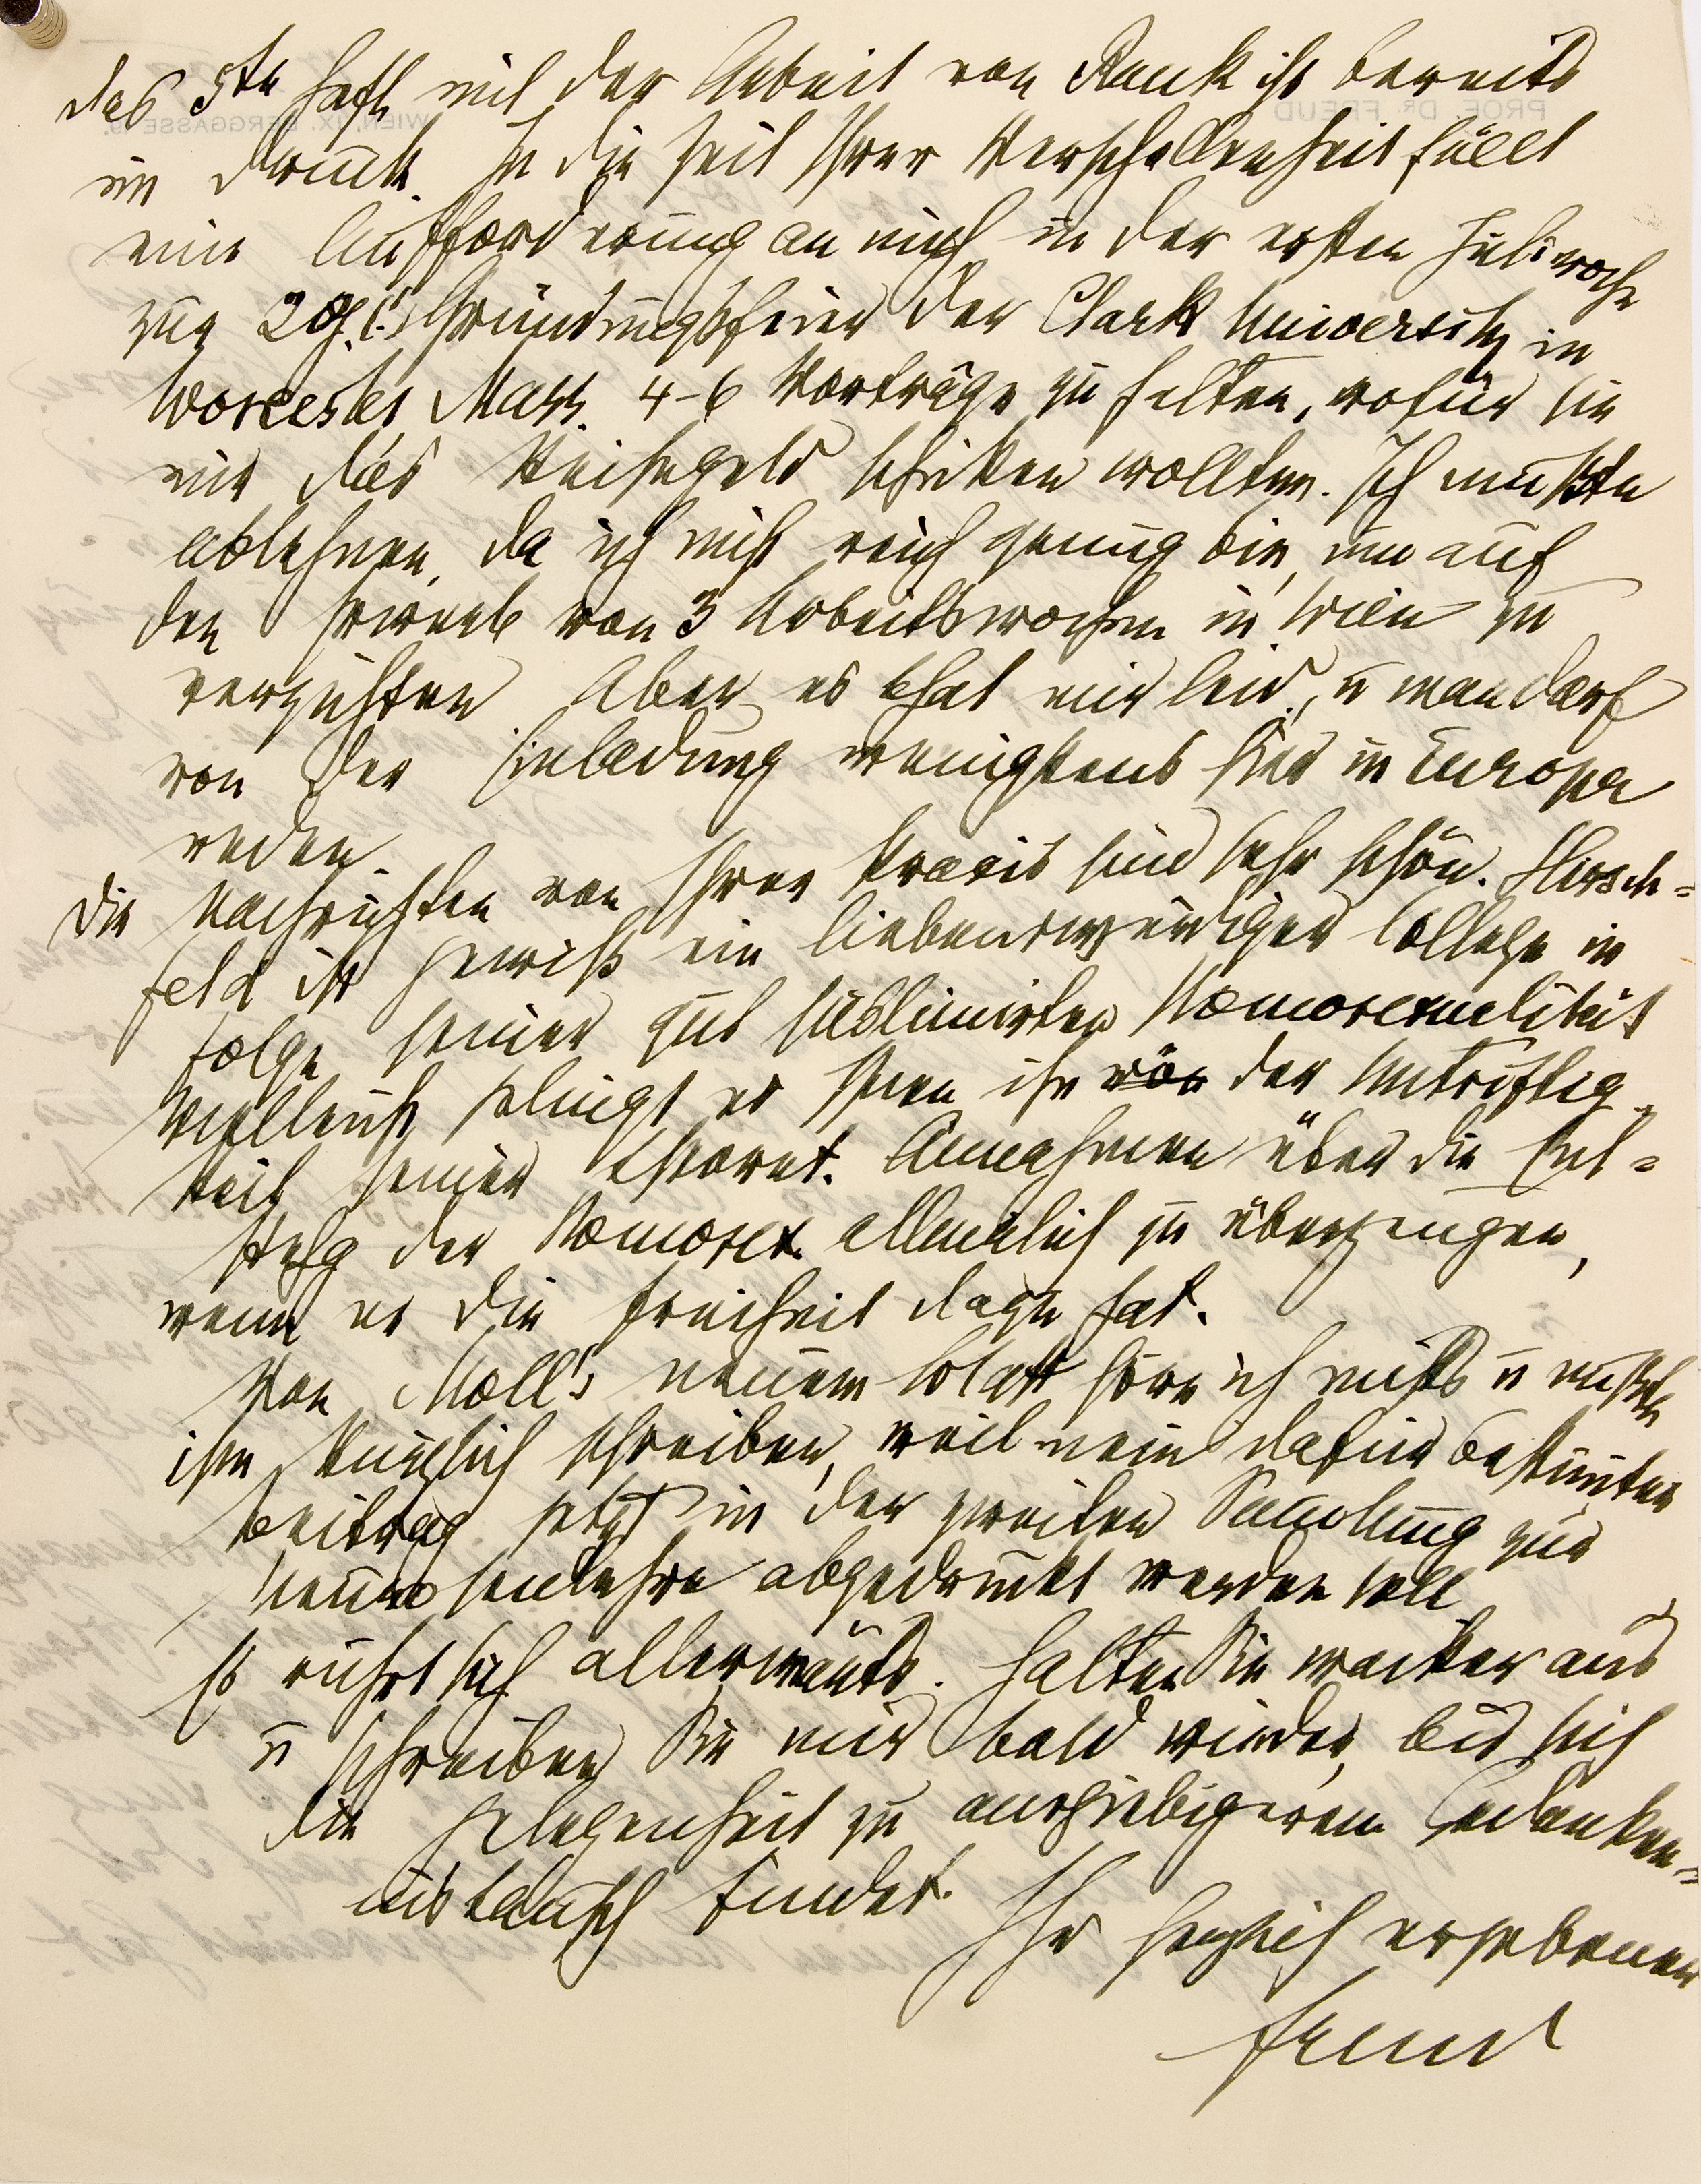 das 5te Heft mit der Arbeit von Rank ist bereits
im Druck. In die Zeit Ihrer Verschollenheit fällt
eine Aufforderung an mich in der ersten Juliwoche
zur 20j. (!) Gründungsfeier der Clark University in
Worcester Mass. 4-6 Vorträge zu halten, wofür sie
mir das Reisegeld schicken wollten. Ich mußte
ablehnen, da ich nicht reich genug bin, um auf
den Erwerb von 3 Arbeitswochen in Wien zu
verzichten. Aber es that mir leid, u man darf
von der Einladung wenigstens hier in Europa
reden.
Die Nachrichten von Ihrer Praxis sind sehr schön. Hirsch=
feld ist gewiß ein liebenswürdiger College in
folge seiner gut sublimirten Homosexualität
Vielleicht gelingt es Ihnen ihn von der Untriftig-
keit seiner theoret. Annahmen über die Ent=
stehg der Homosex. allmälich zu überzeugen,
wenn er die Freiheit dazu hat.
Von Moll's neuem Blatt höre ich nichts u mußte
ihm kürzlich schreiben, weil mein dafür bestimter
Beitrag jetzt in der zweiten Samlung zur
Neurosenlehre abgedruckt werden soll
Es rührt sich allerwärts. Halten Sie wacker aus
u schreiben Sie mir bald wieder, bis sich
die Gelegenheit zu ausgiebigerem Gedanken=
austausch findet.
Ihr herzlich ergebener
Freud
PROF. DR. FREUD
WIEN, IX. BERGGASSE 19.